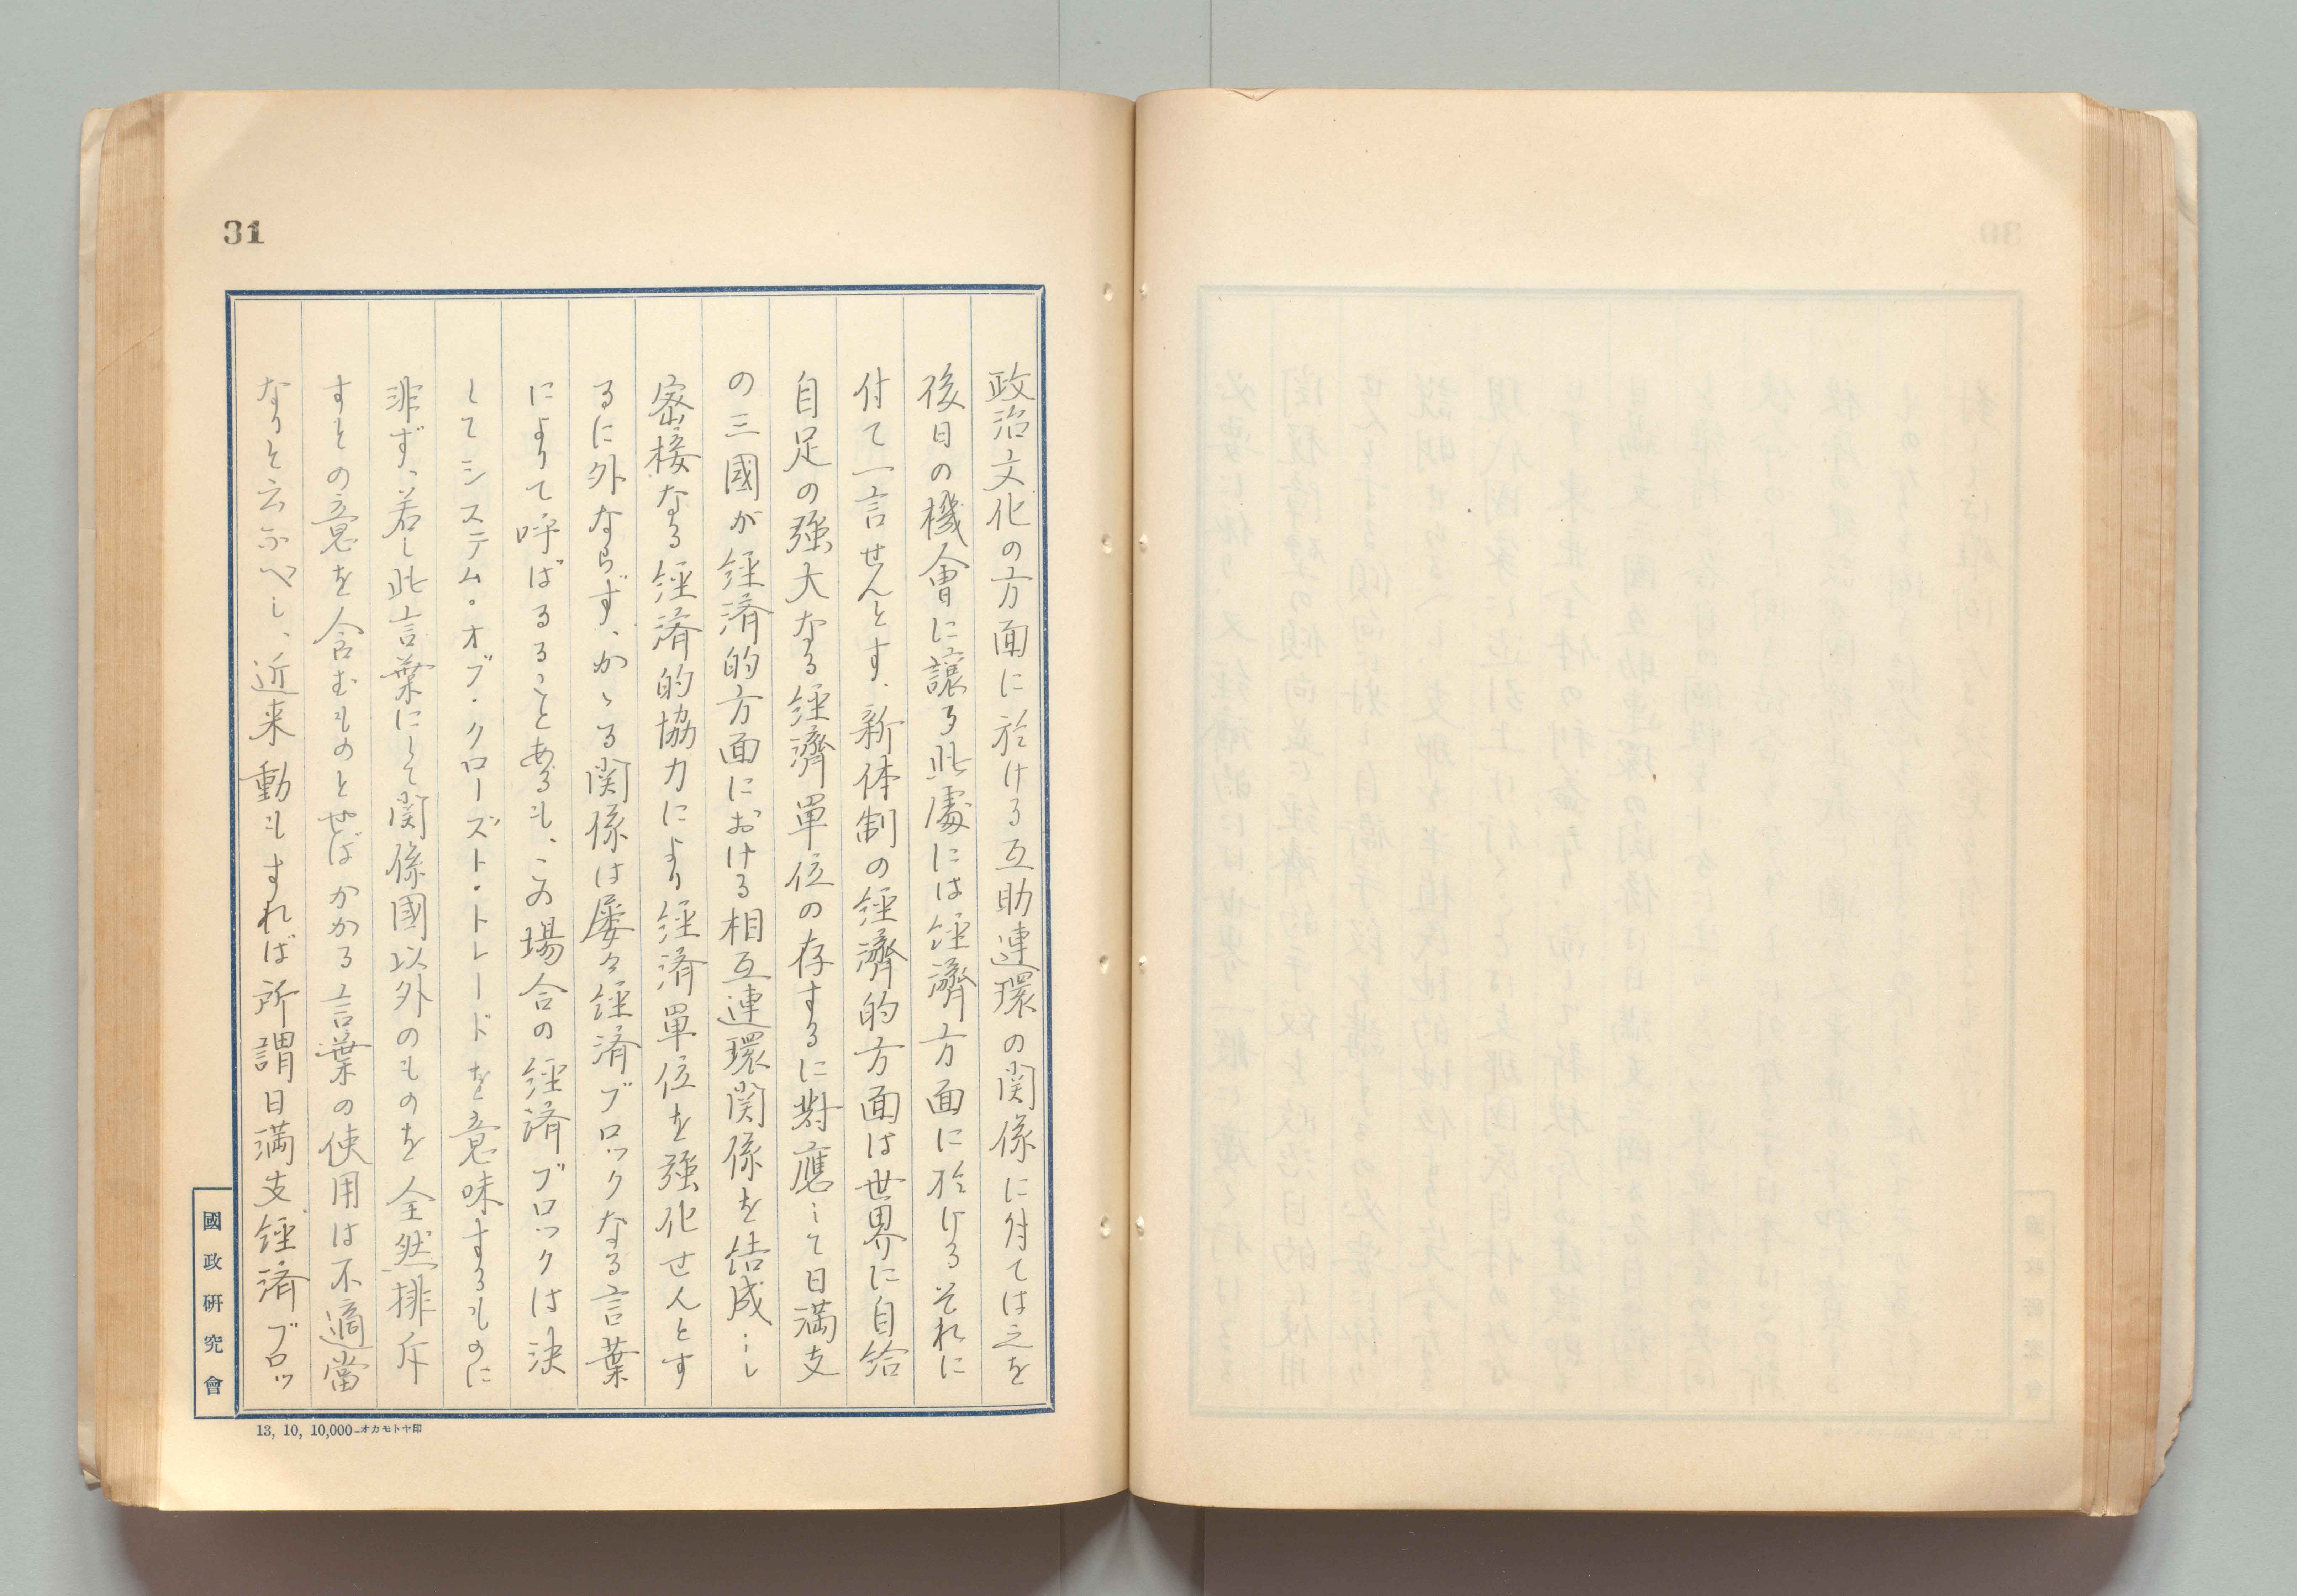 31
政治文化の方面に於ける互助連環の関係に付ては之を
後日の機會に譲り此處には経濟方面に於けるそれに
付て一言せんとす、新体制の経濟的方面は世界に自給
自足の強大なる経濟單位の存するに對應して日満支
の三國が経済的方面における相互連環関係を結成し
密接なる経済的協力により経済單位を強化せんとす
るに外ならず、かゝる関係は屡々経済ブロックなる言葉
によりて呼ばるることあるも、この場合の経済ブロックは決
してシステム・オブ・クローズト・トレードを意味するものに
非ず、若し此言葉にして関係國以外のものを全然排斥
すとの意を含むものとせばかかる言葉の使用は不適當
なりと云ふべし、近来動もすれば所謂日満支経済ブロッ
國政研究會
13, 10, 10,000—オカモトヤ印